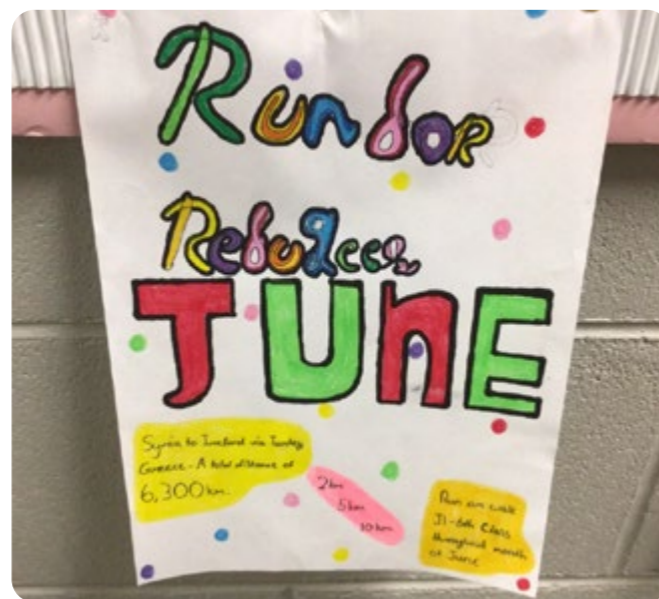 Run for
Refugees
JUNE
Syria to Ireland via Turkey
Greece - A total distance of
6,300 km.
2km
5km
10km
Run or walk
JI - 6th Class
throughout month
of June